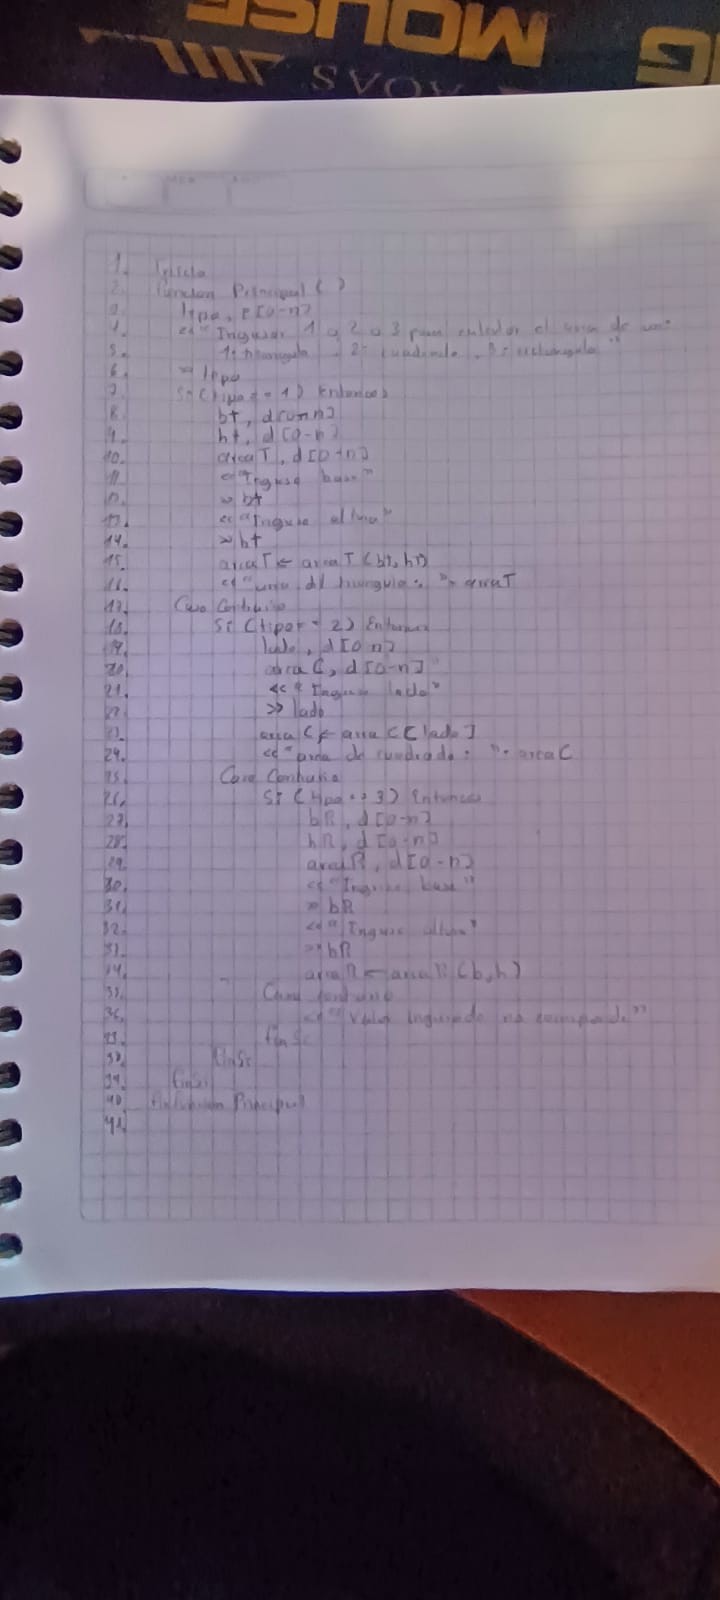 MOUSE
G
SVOV
1. Inicio
2. Funcion Principal ( )
3. tipo, e[0-n]
4. << "Ingresar 1 o 2 o 3 para calcular el area de un:
5. 1= triangulo, 2= cuadrado, 3= rectangulo"
6. >> tipo
7. Si (tipo == 1) Entonces
8. bt, d[0-n]
9. ht, d[0-n]
10. area T, d[0-n]
11. << "Ingrese base"
12. >> bt
13. << "Ingrese altura"
14. >> ht
15. area T ← area T (bt, ht)
16. << "area del triangulo: " area T
17. Caso Contrario
18. Si (tipo == 2) Entonces
19. lado, d[0-n]
20. area C, d[0-n]
21. << "Ingrese lado"
22. >> lado
23. area C ← area C [lado]
24. << "area de cuadrado: " area C
25. Caso Contrario
26. Si (tipo == 3) Entonces
27. bR, d[0-n]
28. hR, d[0-n]
29. area R, d[0-n]
30. << "Ingrese base"
31. >> bR
32. << "Ingrese altura"
33. >> hR
34. area R ← area R (b, h)
35. Caso Contrario
36. << "Valor ingresado no corresponde"
Fin Si
38. Fin Si
39. Fin Si
40. Fin Funcion Principal
41.